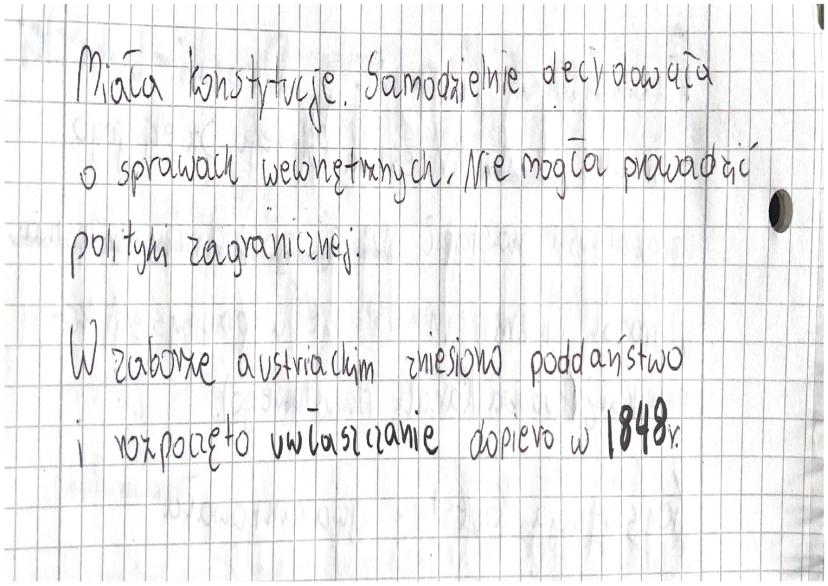 Miała konstytucje. Samodzielnie decydowała
o sprawach wewnętrznych. Nie mogła prowadzić
polityki zagranicznej.
W zaborze austriackim zniesiono poddaństwo
i rozpoczęto uwłaszczanie dopiero w 1848r.